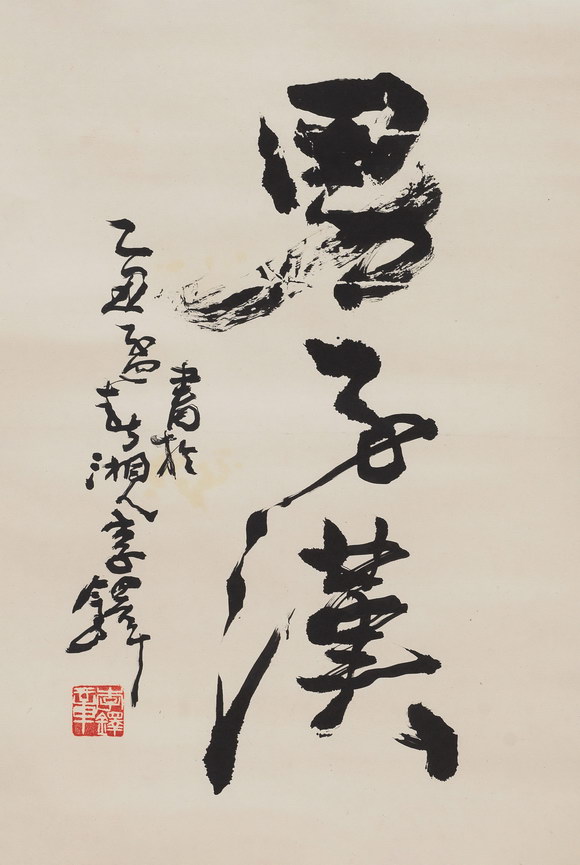 男子漢
書於
乙丑孟春湘人李鐸
李鐸